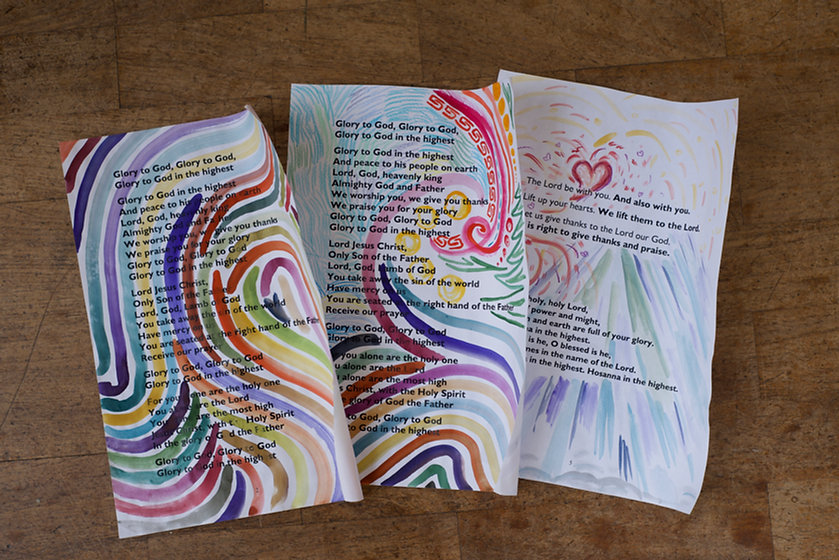 Glory to God, Glory to God,
Glory to God in the highest
Glory to God in the highest
And peace to his people on earth
Lord, God, heavenly king
Almighty God and Father
We worship you, we give you thanks
We praise you for your glory
Glory to God, Glory to God
Glory to God in the highest
Lord Jesus Christ,
Only Son of the Father
Lord, God, Lamb of God
You take away the sin of the world
Have mercy on us
You are seated at the right hand of the Father
Receive our prayer
Glory to God, Glory to God
Glory to God in the highest
For you alone are the holy one
You alone are the Lord
You alone are the most high
Christ, with the Holy Spirit
In the glory of God the Father
Glory to God, Glory to God
Glory to God in the highest
Glory to God, Glory to God,
Glory to God in the highest
Glory to God in the highest
And peace to his people on earth
Lord, God, heavenly king
Almighty God and Father
We worship you, we give you thanks
We praise you for your glory
Glory to God, Glory to God
Glory to God in the highest
Lord Jesus Christ,
Only Son of the Father
Lord, God, Lamb of God
You take away the sin of the world
Have mercy on us
You are seated at the right hand of the Father
Receive our prayer
Glory to God, Glory to God
Glory to God in the highest
you alone are the holy one
alone are the Lord
alone are the most high
Christ, with the Holy Spirit
glory of God the Father
to God, Glory to God
to God in the highest
The Lord be with you. And also with you.
Lift up your hearts. We lift them to the Lord.
us give thanks to the Lord our God.
is right to give thanks and praise.
holy, holy Lord,
power and might,
and earth are full of your glory.
in the highest.
is he, O blessed is he,
in the name of the Lord.
in the highest. Hosanna in the highest.
5